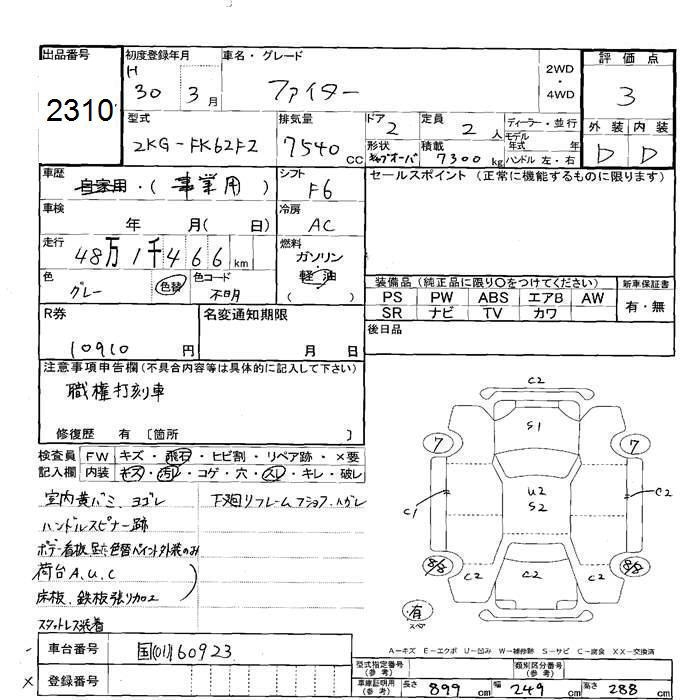 出品番号
2310
初度登録年月
H
30 3月
車名・グレード
ファイター
2WD・4WD
評価点
3
型式
2KG-FK62FZ
排気量
7540 CC
ドア
2
定員
2 人
ディーラー・並行
モデル
年式 年
ハンドル 左・右
形状
キャブオーバ
積載
7300 kg
外装 内装
D D
車歴
自家用・(事業用)
シフト
F6
セールスポイント(正常に機能するものに限ります)
車検
年 月(日)
冷房
AC
走行
48万1千466 km
燃料
ガソリン
軽油
( )
色
グレー 色替
色コード
不明
装備品(純正品に限り〇をつけてください)
新車保証書
PS PW ABS エアB AW
有・無
SR ナビ TV カワ
R券
10910 円
名変通知期限
月 日
後日品
注意事項申告欄(不具合内容等は具体的に記入して下さい)
職権打刻車
修復歴 有 〔箇所 〕
検査員 FW キズ・飛石・ヒビ割・リペア跡・×要
記入欄 内装 キズ・汚れ・コゲ・穴・スレ・キレ・破レ
室内黄バミ、ヨゴレ
下廻りフレームサビ、ハガレ
ハンドルスピナー跡
ボデー看板 色替ペイント外装のみ
荷台A、U、C
床板、鉄板張り加工
スタットレス装着
C2
S1
7 7
C1
U2
S2
C2
8/8 8/8
C2 C2 C2
有
スペア
A−キズ E−エクボ U−凹み W−補修跡 S−サビ C−腐食 XX−交換済
車台番号
国(01)160923
× 登録番号
型式指定番号
(参考)
類別区分番号
(参考)
車庫証明用
(参考)
長さ 899 cm 幅 249 cm 高さ 288 cm